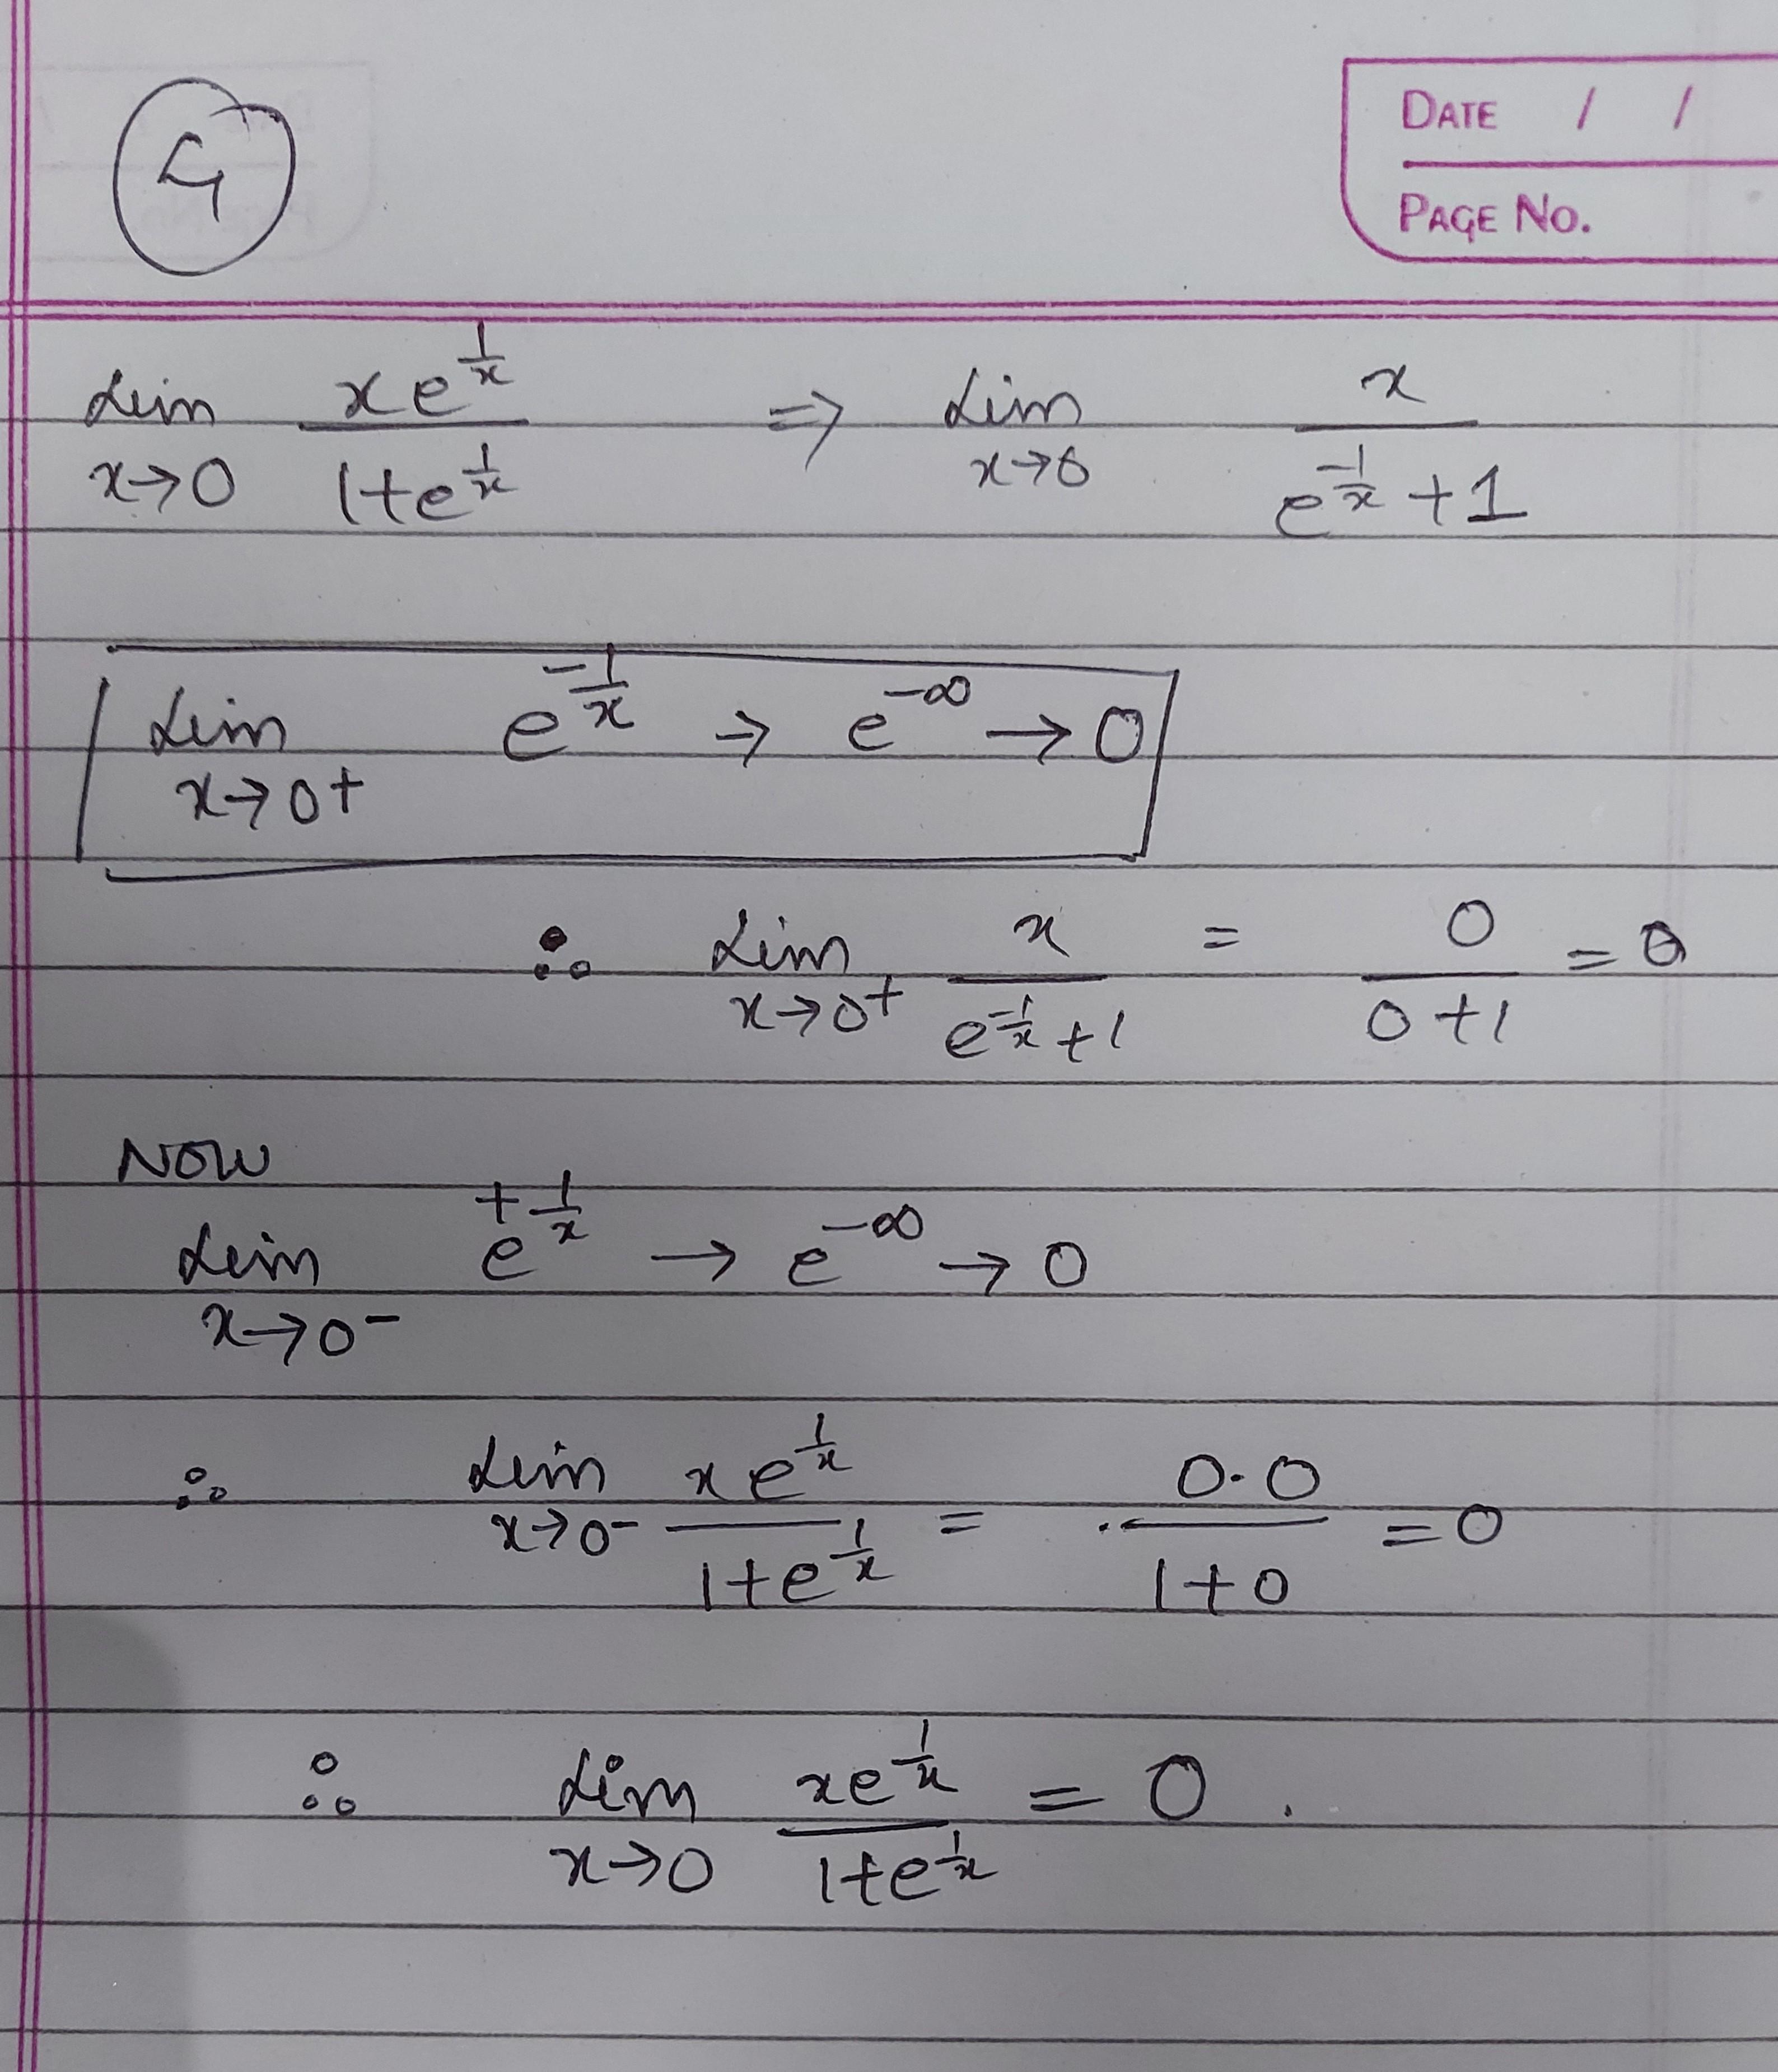 4
DATE / /
PAGE NO.
Lim x→0 xe^(1/x) / 1+e^(1/x) ⇒ Lim x→0 x / e^(-1/x) + 1
Lim x→0+ e^(-1/x) → e^(-∞) → 0
∴ Lim x→0+ x / e^(-1/x) + 1 = 0 / 0+1 = 0
NOW
Lim x→0- e^(+1/x) → e^(-∞) → 0
∴ Lim x→0- x e^(1/x) / 1+e^(1/x) = 0·0 / 1+0 = 0
∴ Lim x→0 xe^(1/x) / 1+e^(1/x) = 0.